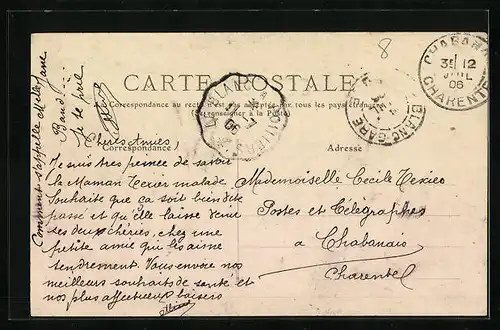 8
CARTE POSTALE
Correspondance au recto n'est pas acceptée par tous les pays étrangers
(Se renseigner à la Poste)
CHABANAIS
CHARENTE
12
06
BLANC-GARE
06
Correspondance
Adresse
Chères Amies,
Je suis très peinée de savoir
la Maman Texier malade
Souhaite que ça soit bien vite
passé et qu'elle laisse venir
ses deux chéries, chez une
petite amie qui les aime
tendrement. Vous envoie nos
meilleurs souhaits de santé et
nos plus affectueux baisers
Mademoiselle Cecile Texier
Postes et Télégraphes
à Chabanais
Charente
Comment s'appelle